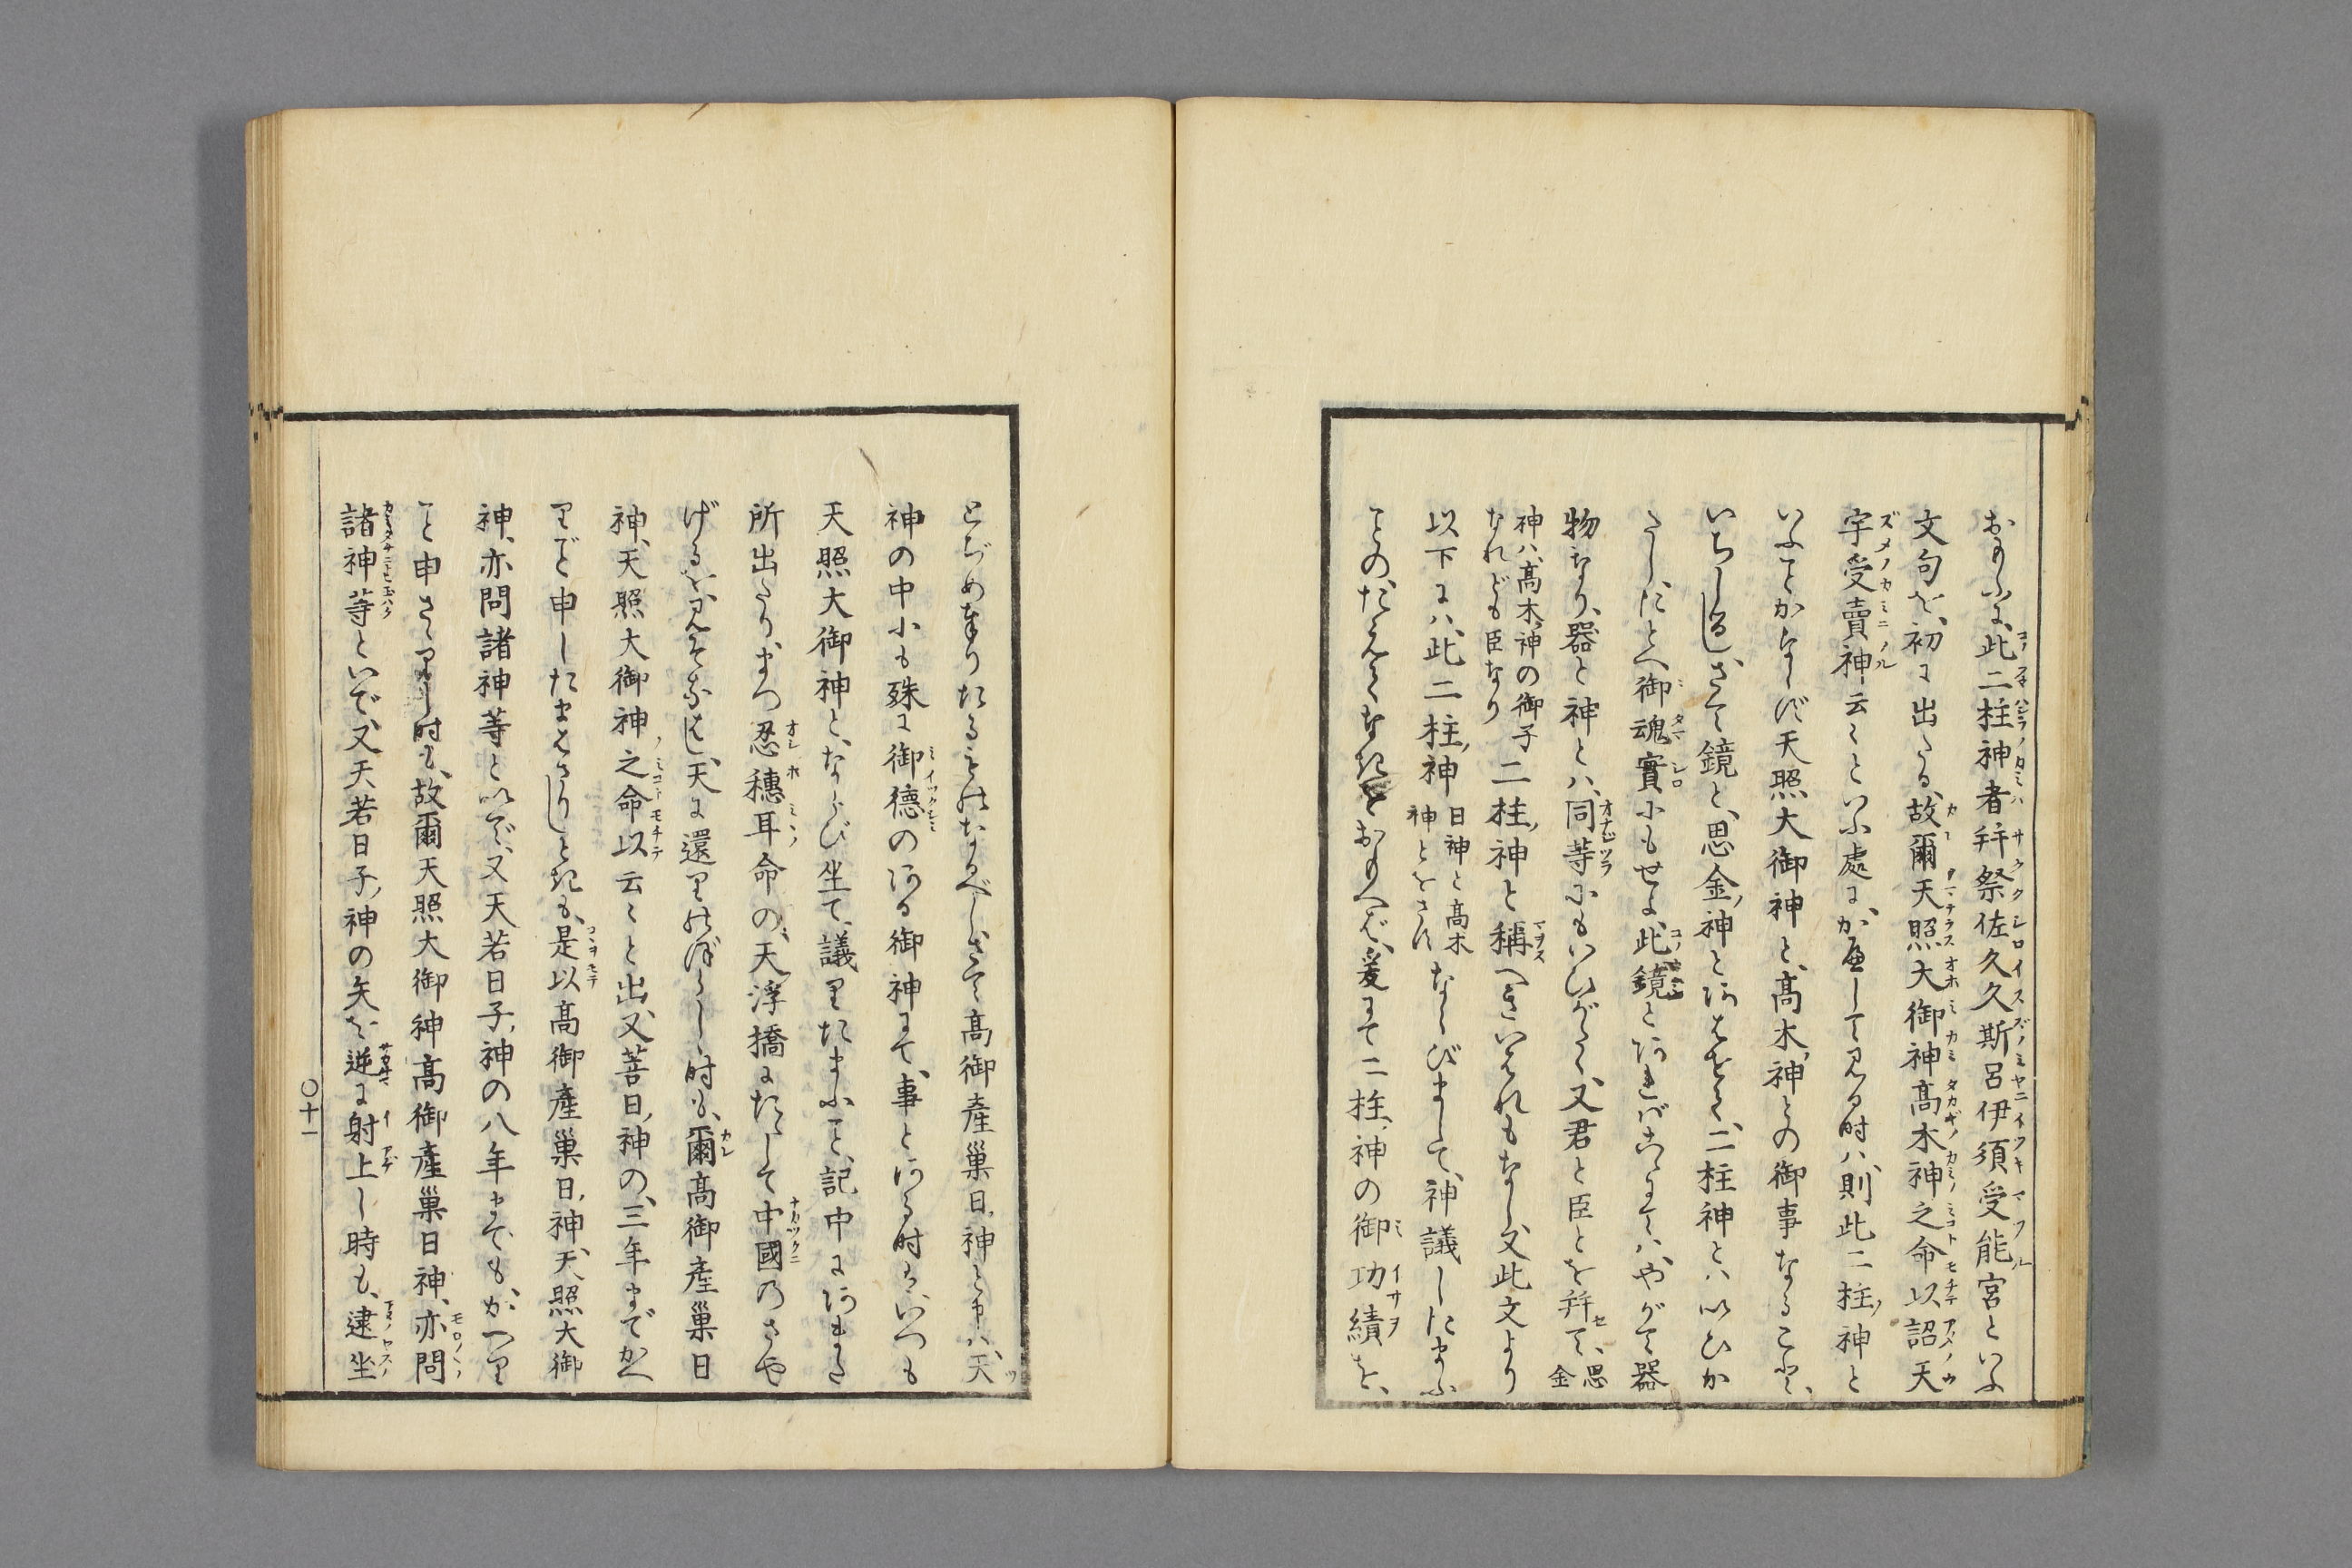 おもふに、此二柱神者拜祭佐久久斯呂伊須受能宮といふ
文句を、初に出たる、故爾天照大御神髙木神之命以詔天
宇受賣神云々といふ處に、かへして見る時ハ、則此二柱ノ神と
いふことかならず天照大御神と、髙木ノ神との御事なること、
いちしるし、さて鏡と、思金ノ神とをさして、二柱神とハいひか
たし、たとへ御魂實にもせよ、此鏡とあればこゝにてハ、やがて器
物なり、器と神とハ、同等にもいひがたく、又君と臣とを幷て、思金
神ハ、髙木ノ神の御子なれども臣なり二柱ノ神と稱へきいはれもなし、又此文より
以下にハ、此二柱ノ神日神と髙木神とをさすならびまして、神議したまふ
ことの、たえてなきをおもへば、爰にて二柱ノ神の御功績を、
とぢめ奉りたるものなるべし、さて髙御產巢日ノ神と申ハ、天ツ
神の中にも殊に御德のある御神にて、事とある時は、いつも
天照大御神と、ならび坐て、議りたまふこと、記中にあまた
所出たり、まつ忍穗耳命の、天ノ浮橋にたゝして中國のさや
げるを見そなはし、天に還りのぼらしゝ時も、爾髙御產巢日
神、天照大御神之命以云々と出、又菩日ノ神の、三年までかへ
りごと申したまはさりしときも、是以髙御產巢日ノ神、天照大御
神、亦問諸神等といで、又天若日子ノ神の八年までも、かへり
こと申さゝりし時も、故爾天照大御神髙御產巢日神、亦問
諸神等といで、又天若日子ノ神の矢を逆に射上し時も、逮坐
〇十一